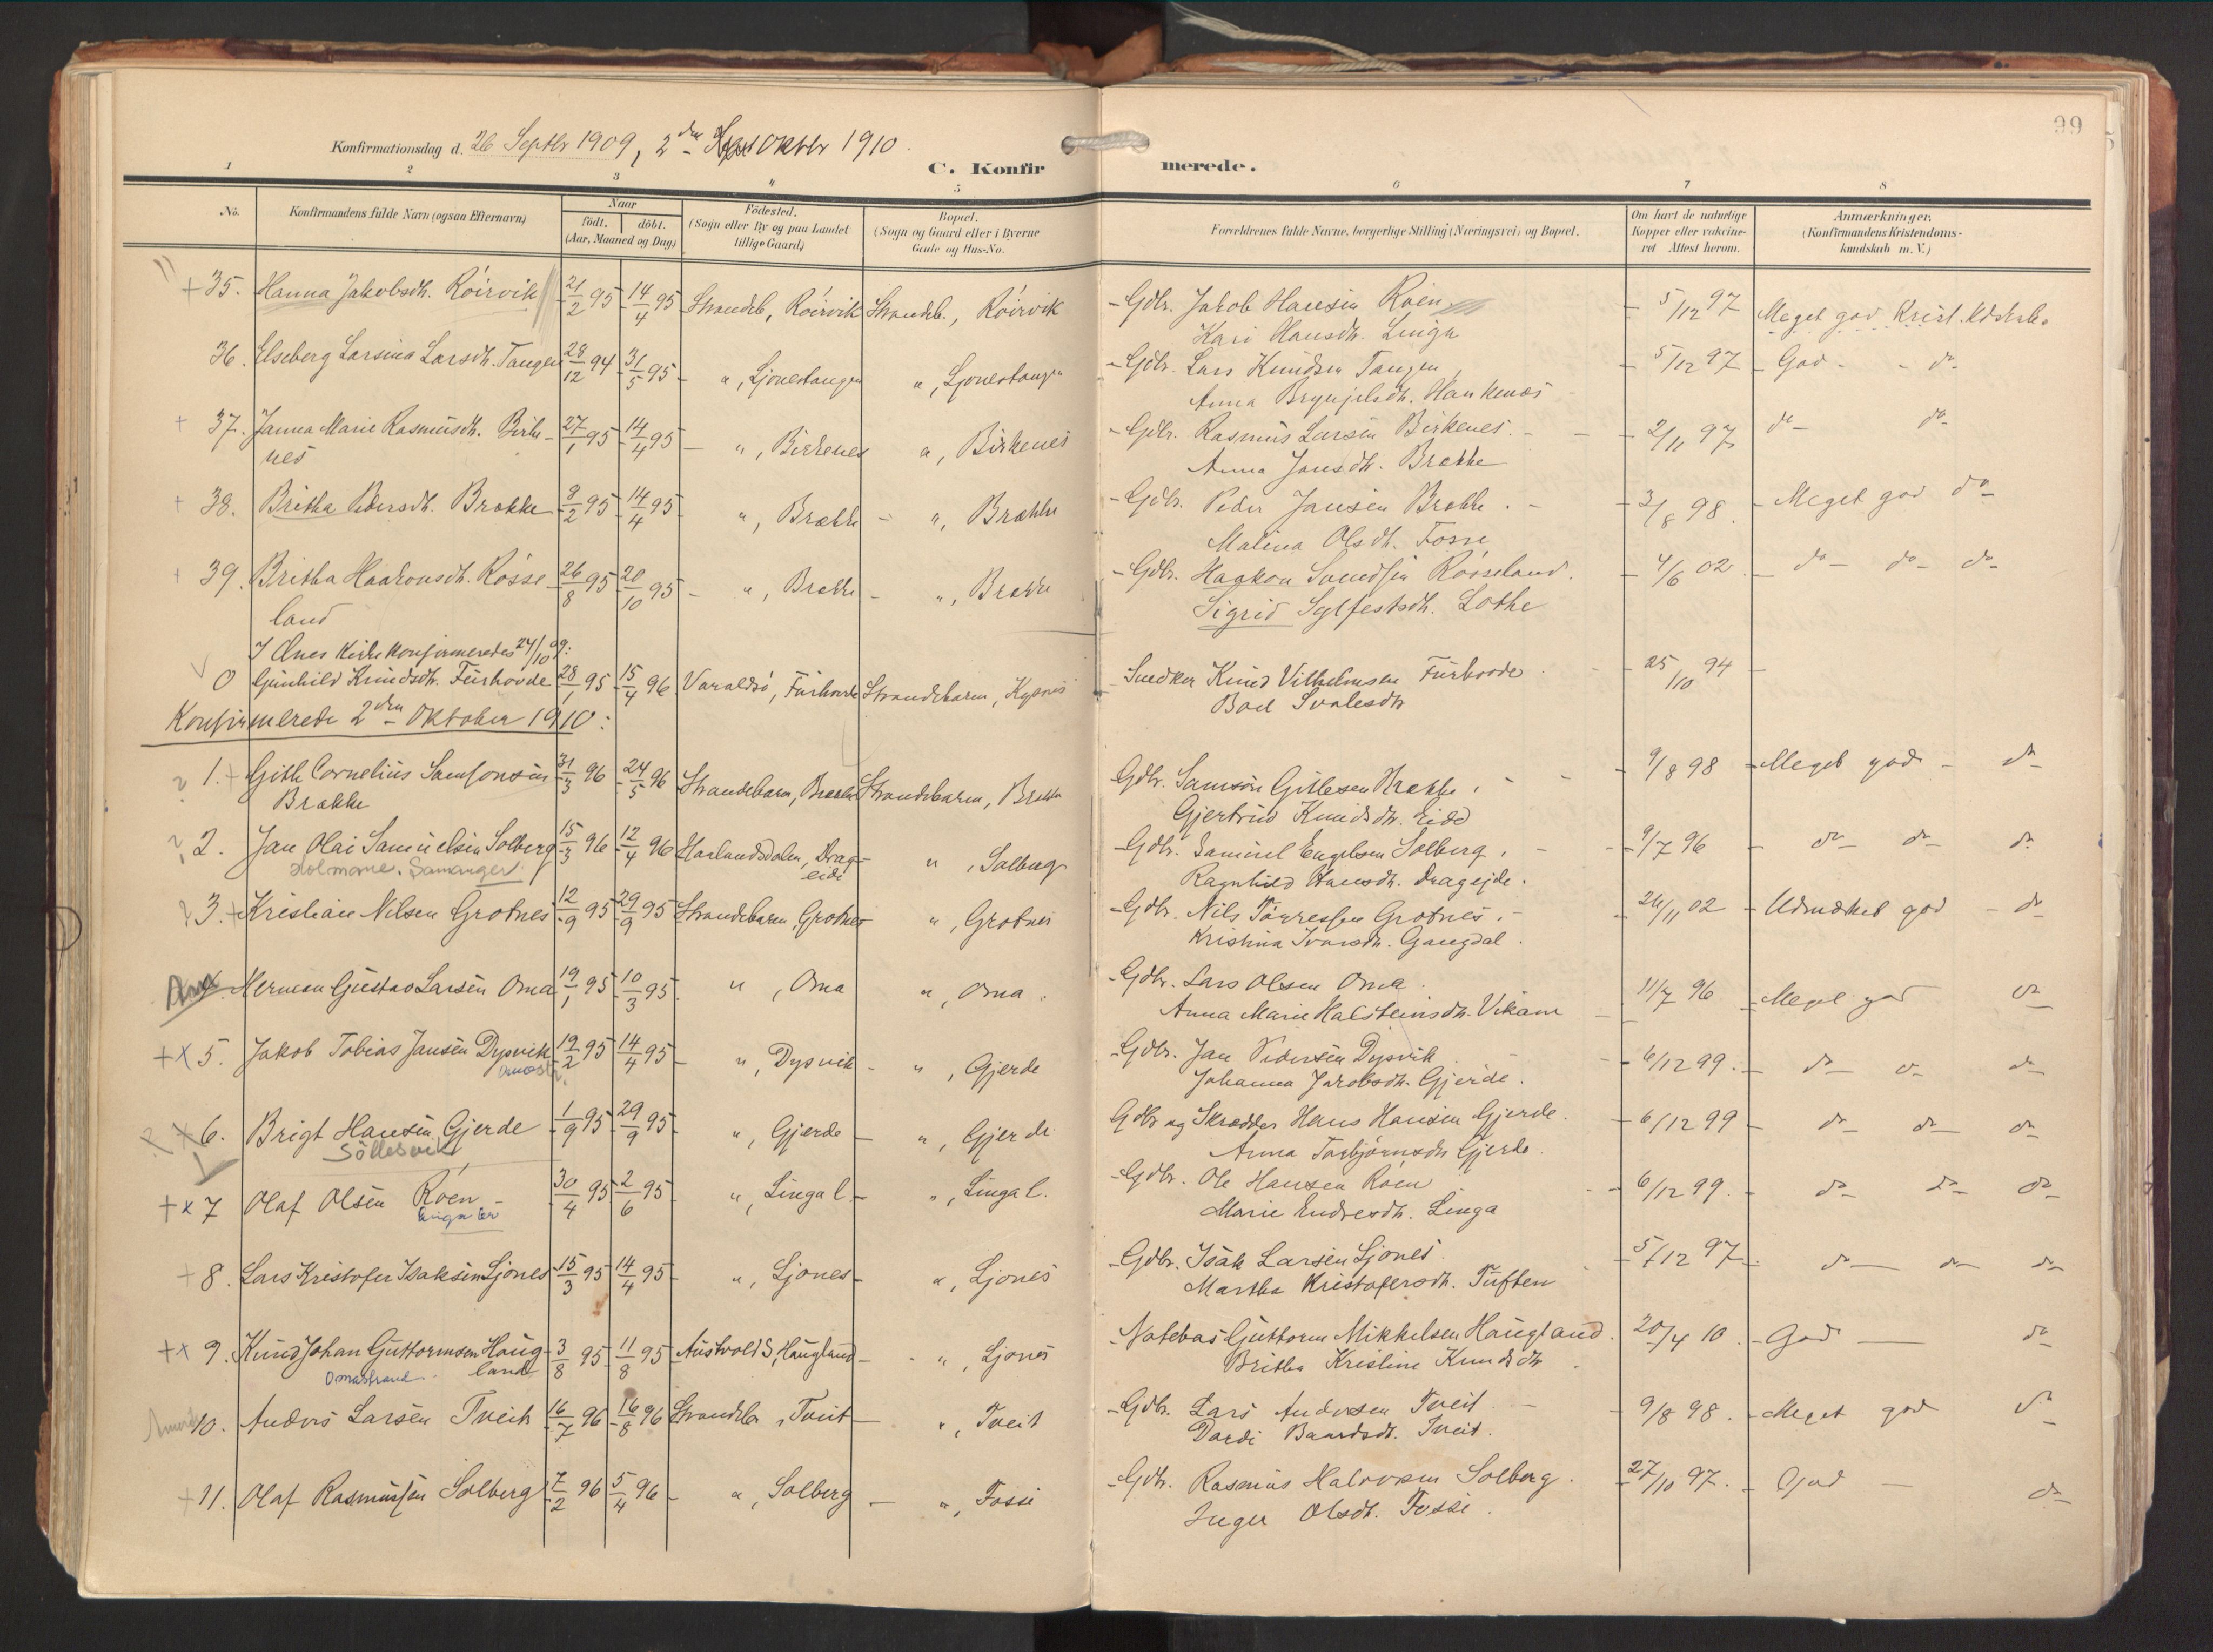 99
Konfirmationsdag d. 26 Septbr 1909, 2den Oktbr 1910.
C. Konfirmerede.
1 2 3 4 5 6 7 8
No. Konfirmandens fulde Navn (ogsaa Efternavn) Naar født. døbt. (Aar, Maaned og Dag) Fødested. (Sogn eller By og paa Landet tillige Gaard) Bopæl. (Sogn og Gaard eller i Byerne Gade og Hus-No. Forældrenes fulde Navne, borgerlige Stilling (Næringsvei) og Bopæl. Om havt de naturlige Kopper eller vaccineret Attest herom. Anmærkninger. (Konfirmandens Kristendomskundskab m. V.)
+ 35. Hanna Jakobsdt. Röirvik 21/2 95 14/4 95 Strandeb, Röirvik Strandb., Röirvik - Gdbr. Jakob Hansen Röen - 5/12 97 Meget god Krist. Kdskab.
Kari Hansdt. Linga
36. Elseberg Larsina Larsdt. Tangen 28/12 94 31/5 95 - ", Ljonestangen ", Ljonestangen - Gdbr. Lars Knudsen Tangen - 5/12 97 - God - - do
Anna Brynjelsdt. Haukenæs
+ 37. Janna Marie Rasmusdt. Birke- 27/1 95 14/4 95 - ", Birkenes ", Birkenes - Gdbr. Rasmus Larsen Birkenes - 2/11 97 do do
nes Anna Jansdt. Brække
+ 38. Britha Pedersdt. Brække 8/2 95 14/4 95 ", Brække - ", Brække - Gdbr. Peder Jansen Brække - 3/8 98 - Meget god do
Malina Olsdt. Fosse
+ 39. Britha Haakonsdt. Rösse- 26/8 95 20/10 95 - ", Brække - ", Brække - Gdbr. Haakon Svendsen Rösseland. - 4/6 02 - do do do
land Sigrid Sylfestsdt. Lothe
I Ænes Kirke konfirmeredes 24/10 09:
0 Gunhild Knudsdt. Furhovde 28/1 95 15/4 96 Varaldsö, Furhovde Strandebarm, Kysnes Snedker Knud Vilhelmsen Furhovde - 25/10 94 -
Konfirmerede 2den Oktober 1910:
1. + Gitle Cornelius Samsonsen 31/3 96 24/5 96 Strandebarm, Brække Strandebarm, Brække Gdbr. Samson Gitlesen Brække - 9/8 98 - Meget god - do
Brække Gjertrud Knudsdt. Eide
? 2. Jan Olai Samuelsen Solberg 15/3 96 12/4 96 Haalandsdalen, Drag- ", Solberg - Gdbr. Samuel Engelsen Solberg - 9/7 96 - do do do
Holmane. Samanger. eide Ragnhild Hansdt. Drageide.
? 3. + Kristian Nilsen Grotnes 12/9 95 29/9 95 Strandebarm, Grotnes ", Grotnes - Gdbr. Nils Törressen Grotnes. - 26/11 02 - Udmærket god - do
Kristina Ivarsdt. Gangdal.
Herman Gustav Larsen Oma 19/1 95 10/3 95 ", Oma ", Oma. - Gdbr. Lars Olsen Oma. 11/7 96 - Meget god do
Anna Marie Halsteinsdt. Vikane
+x 5. Jakob Tobias Jansen Dysvik 19/2 95 14/4 95 - ", Dysvik - ", Gjerde - Gdbr. Jan Pedersen Dysvik - 6/12 99. - do do do
Omastr. Johanna Jakobsdt. Gjerde.
? x 6. Brigt Hansen Gjerde 1/9 95 29/9 95 ", Gjerde - ", Gjerde Gdbr og Skrædder Hans Hansen Gjerde. - 6/12 99 - do do do
Söllesvik Anna Torbjörnsdt Gjerde.
+x 7 Olaf Olsen Röen - 30/4 95 2/6 95 ", Linga l. - ", Linga l. - Gdbr. Ole Hansen Röen - 6/12 99. - do do do
Marie Endresdt. Linga
+ 8. Lars Kristofer Isaksen Ljones 15/3 95 14/4 95 - ", Ljones - ", Ljones - Gdbr. Isak Larsen Ljones - 5/12 97 - do do do
Martha Kristofersdt. Tuften
+x 9. Knud Johan Guttormsen Haug- 3/8 95 11/8 95 Austvold S, Haugland - ", Ljones - Notebas Guttorm Mikkelsen Haugland. 20/4 10. - God - do
Omastrand. land Britha Kristine Knudsdt
10. Anders Larsen Tveit 16/7 96 16/8 96 Strandeb, Tveit - ", Tveit - Gdbr. Lars Andersen Tveit - 9/8 98. - Meget god do
Dordi Baardsdt. Tveit.
+ 11. Olaf Rasmussen Solberg 7/2 96 5/4 96 - ", Solberg - ", Fosse - Gdbr. Rasmus Halvorsen Solberg. - 27/10 97. - God - do
Inger Olsdt. Fosse.